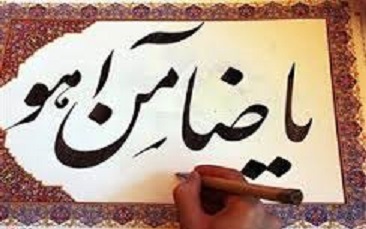 یا ضامِن آهو